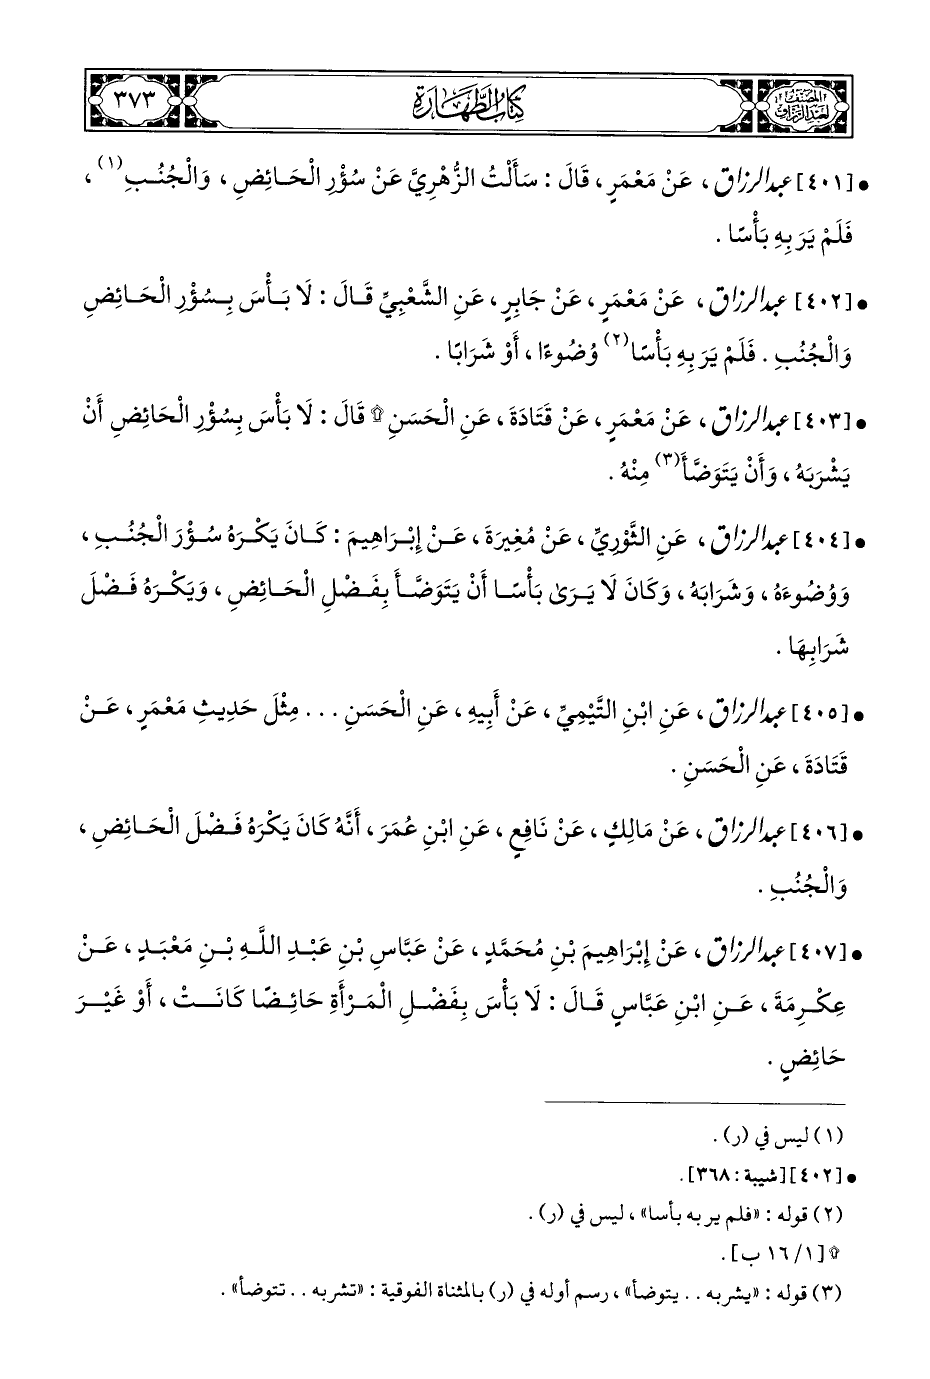 المصنف لعبد الرزاق كتاب الطهارة ٣٧٣
• [٤٠١] عبد الرزاق، عَنْ مَعْمَرٍ، قَالَ: سَأَلْتُ الزُّهْرِيَّ عَنْ سُؤْرِ الْحَائِضِ، وَالْجُنُبِ(١)،
فَلَمْ يَرَ بِهِ بَأْسًا.
• [٤٠٢] عبد الرزاق، عَنْ مَعْمَرٍ، عَنْ جَابِرٍ، عَنِ الشَّعْبِيِّ قَالَ: لَا بَأْسَ بِسُؤْرِ الْحَائِضِ
وَالْجُنُبِ. فَلَمْ يَرَ بِهِ بَأْسًا(٢) وُضُوءًا، أَوْ شَرَابًا.
• [٤٠٣] عبد الرزاق، عَنْ مَعْمَرٍ، عَنْ قَتَادَةَ، عَنِ الْحَسَنِ ۩ قَالَ: لَا بَأْسَ بِسُؤْرِ الْحَائِضِ أَنْ
يَشْرَبَهُ، وَأَنْ يَتَوَضَّأَ(٣) مِنْهُ.
• [٤٠٤] عبد الرزاق، عَنِ الثَّوْرِيِّ، عَنْ مُغِيرَةَ، عَنْ إِبْرَاهِيمَ: كَانَ يَكْرَهُ سُؤْرَ الْجُنُبِ،
وَوُضُوءَهُ، وَشَرَابَهُ، وَكَانَ لَا يَرَىٰ بَأْسًا أَنْ يَتَوَضَّأَ بِفَضْلِ الْحَائِضِ، وَيَكْرَهُ فَضْلَ
شَرَابِهَا.
• [٤٠٥] عبد الرزاق، عَنِ ابْنِ التَّيْمِيِّ، عَنْ أَبِيهِ، عَنِ الْحَسَنِ... مِثْلَ حَدِيثِ مَعْمَرٍ، عَنْ
قَتَادَةَ، عَنِ الْحَسَنِ.
• [٤٠٦] عبد الرزاق، عَنْ مَالِكٍ، عَنْ نَافِعٍ، عَنِ ابْنِ عُمَرَ، أَنَّهُ كَانَ يَكْرَهُ فَضْلَ الْحَائِضِ،
وَالْجُنُبِ.
• [٤٠٧] عبد الرزاق، عَنْ إِبْرَاهِيمَ بْنِ مُحَمَّدٍ، عَنْ عَبَّاسِ بْنِ عَبْدِ اللَّهِ بْنِ مَعْبَدٍ، عَنْ
عِكْرِمَةَ، عَنِ ابْنِ عَبَّاسٍ قَالَ: لَا بَأْسَ بِفَضْلِ الْمَرْأَةِ حَائِضًا كَانَتْ، أَوْ غَيْرَ
حَائِضٍ.
(١) ليس في (ر).
• [٤٠٢] [شيبة: ٣٦٨].
(٢) قوله: «فلم ير به بأسا»، ليس في (ر).
۩ [١/ ١٦ ب].
(٣) قوله: «يشربه.. يتوضأ»، رسم أوله في (ر) بالمثناة الفوقية: «تشربه.. تتوضأ».